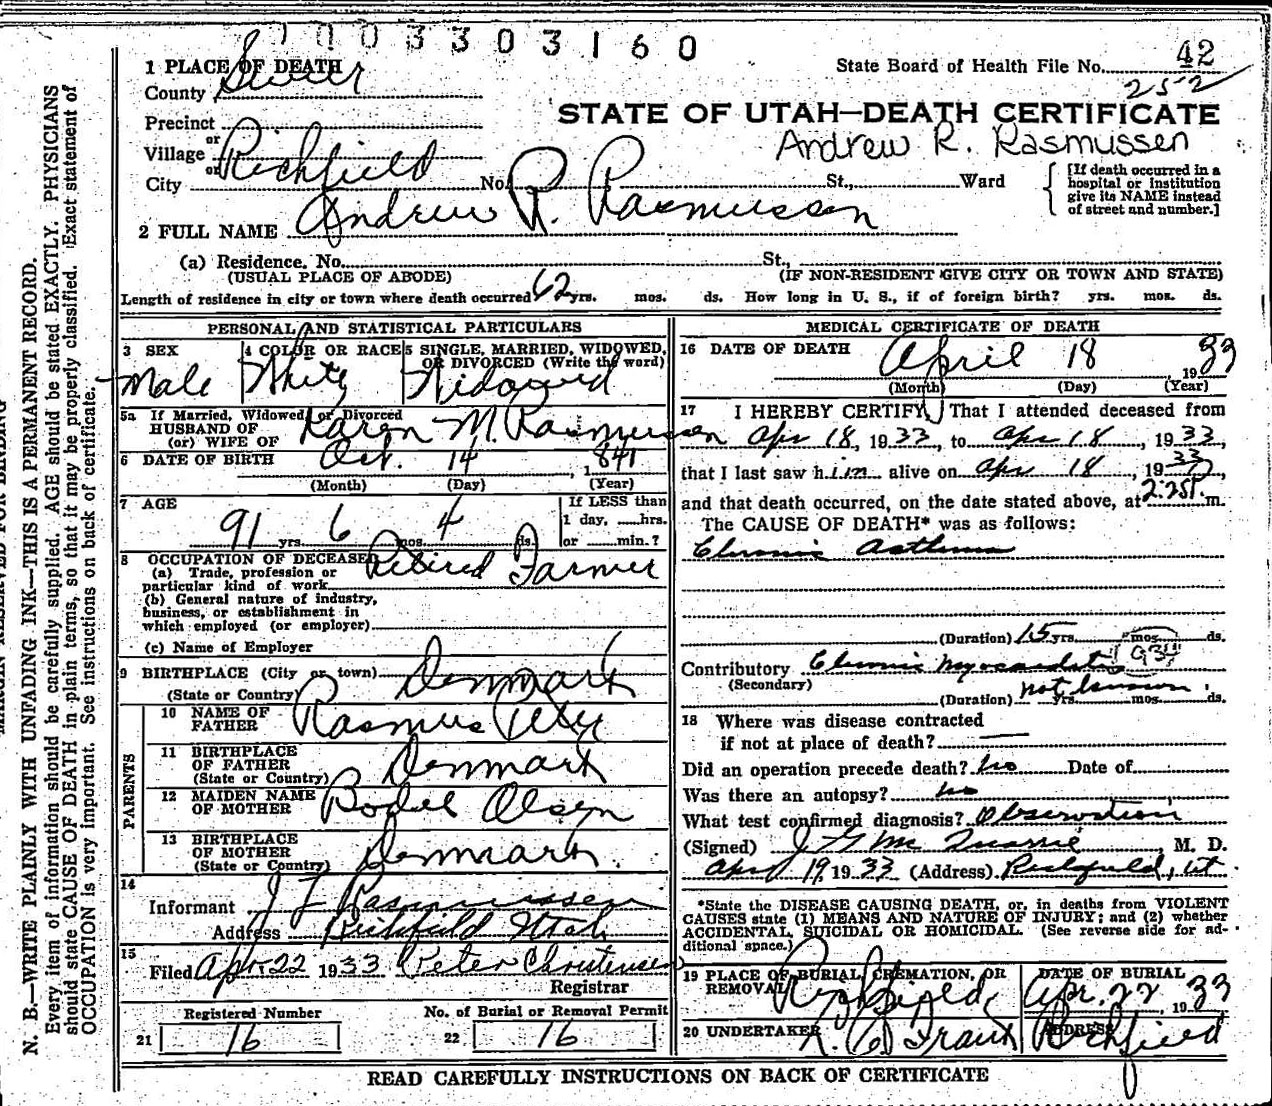 1003303160
42
State Board of Health File No.
252
1 PLACE OF DEATH
County Sevier
STATE OF UTAH—DEATH CERTIFICATE
Precinct
or
Andrew R. Rasmussen
Village
or
City Richfield No. St., Ward
[If death occurred in a
hospital or institution
give its NAME instead
of street and number.]
2 FULL NAME Andrew R. Rasmussen
(a) Residence. No. St.,
(USUAL PLACE OF ABODE) (IF NON-RESIDENT GIVE CITY OR TOWN AND STATE)
Length of residence in city or town where death occurred 62 yrs. mos. ds. How long in U. S., if of foreign birth? yrs. mos. ds.
PERSONAL AND STATISTICAL PARTICULARS
3 SEX 4 COLOR OR RACE 5 SINGLE, MARRIED, WIDOWED,
OR DIVORCED (Write the word)
Male White Widowed
5a If Married, Widowed, or Divorced
HUSBAND OF
(or) WIFE OF Karen M. Rasmussen
6 DATE OF BIRTH Oct. 14, 1841
(Month) (Day) (Year)
7 AGE If LESS than
1 day, hrs.
91 yrs. 6 mos. 4 ds. or min.?
8 OCCUPATION OF DECEASED
(a) Trade, profession or
particular kind of work Retired Farmer
(b) General nature of industry,
business, or establishment in
which employed (or employer)
(c) Name of Employer
9 BIRTHPLACE (City or town)
(State or Country) Denmark
PARENTS
10 NAME OF
FATHER Rasmus
11 BIRTHPLACE
OF FATHER
(State or Country) Denmark
12 MAIDEN NAME
OF MOTHER Bodel Olsen
13 BIRTHPLACE
OF MOTHER
(State or Country) Denmark.
14
Informant J F Rasmussen
Address Richfield Utah
15
Filed Apr. 22 1933 Peter Christensen
Registrar
Registered Number No. of Burial or Removal Permit
21 16 22 16
MEDICAL CERTIFICATE OF DEATH
16 DATE OF DEATH April 18 1933
(Month) (Day) (Year)
17 I HEREBY CERTIFY, That I attended deceased from
Apr 18, 1933, to Apr 18, 1933,
that I last saw him alive on Apr 18, 1933,
and that death occurred, on the date stated above, at 2.25 P. m.
The CAUSE OF DEATH* was as follows:
Chronic Asthma
(Duration) 15 yrs. mos. ds.
Contributory Chronic Myocarditis
(Secondary)
(Duration) not known yrs. mos. ds.
18 Where was disease contracted
if not at place of death? —
Did an operation precede death? no Date of
Was there an autopsy? no
What test confirmed diagnosis? Observation
(Signed) J G Mc Quarrie, M. D.
Apr 19, 1933 (Address) Richfield, Ut
*State the DISEASE CAUSING DEATH, or, in deaths from VIOLENT
CAUSES state (1) MEANS AND NATURE OF INJURY; and (2) whether
ACCIDENTAL, SUICIDAL OR HOMICIDAL. (See reverse side for ad-
ditional space.)
19 PLACE OF BURIAL, CREMATION, OR
REMOVAL Richfield, DATE OF BURIAL
Apr. 22, 1933
20 UNDERTAKER ADDRESS Richfield
READ CAREFULLY INSTRUCTIONS ON BACK OF CERTIFICATE
MARGIN RESERVED FOR BINDING
N. B.—WRITE PLAINLY WITH UNFADING INK—THIS IS A PERMANENT RECORD.
Every item of information should be carefully supplied. AGE should be stated EXACTLY. PHYSICIANS
should state CAUSE OF DEATH in plain terms, so that it may be properly classified. Exact statement of
OCCUPATION is very important. See instructions on back of certificate.